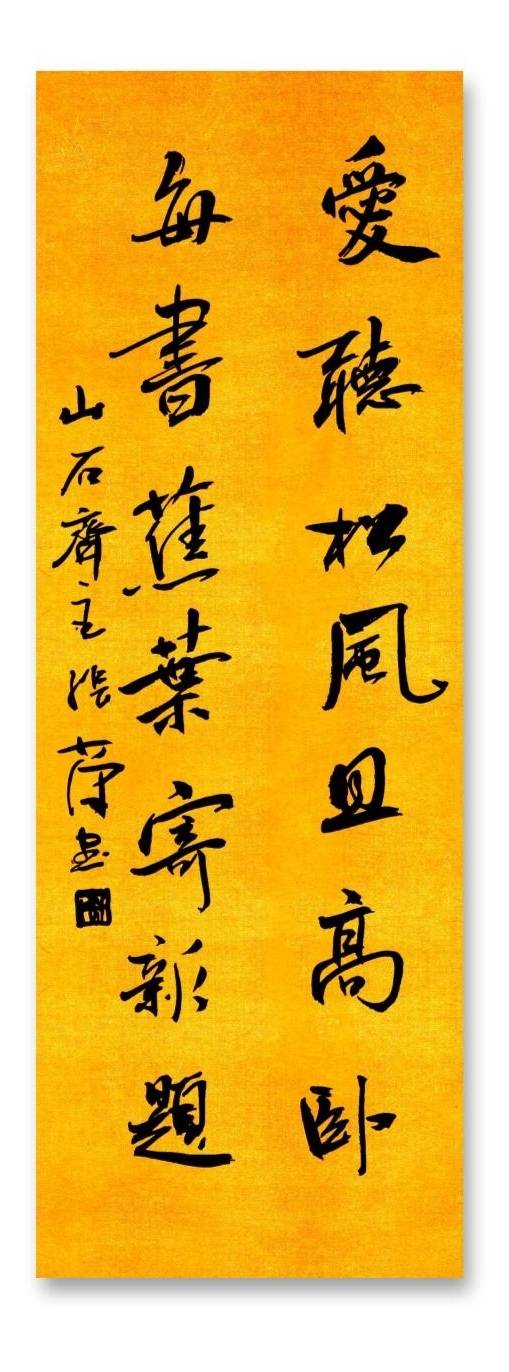 愛聽松風且高卧
每書蕉葉寄新題
山石齊主張蘭書